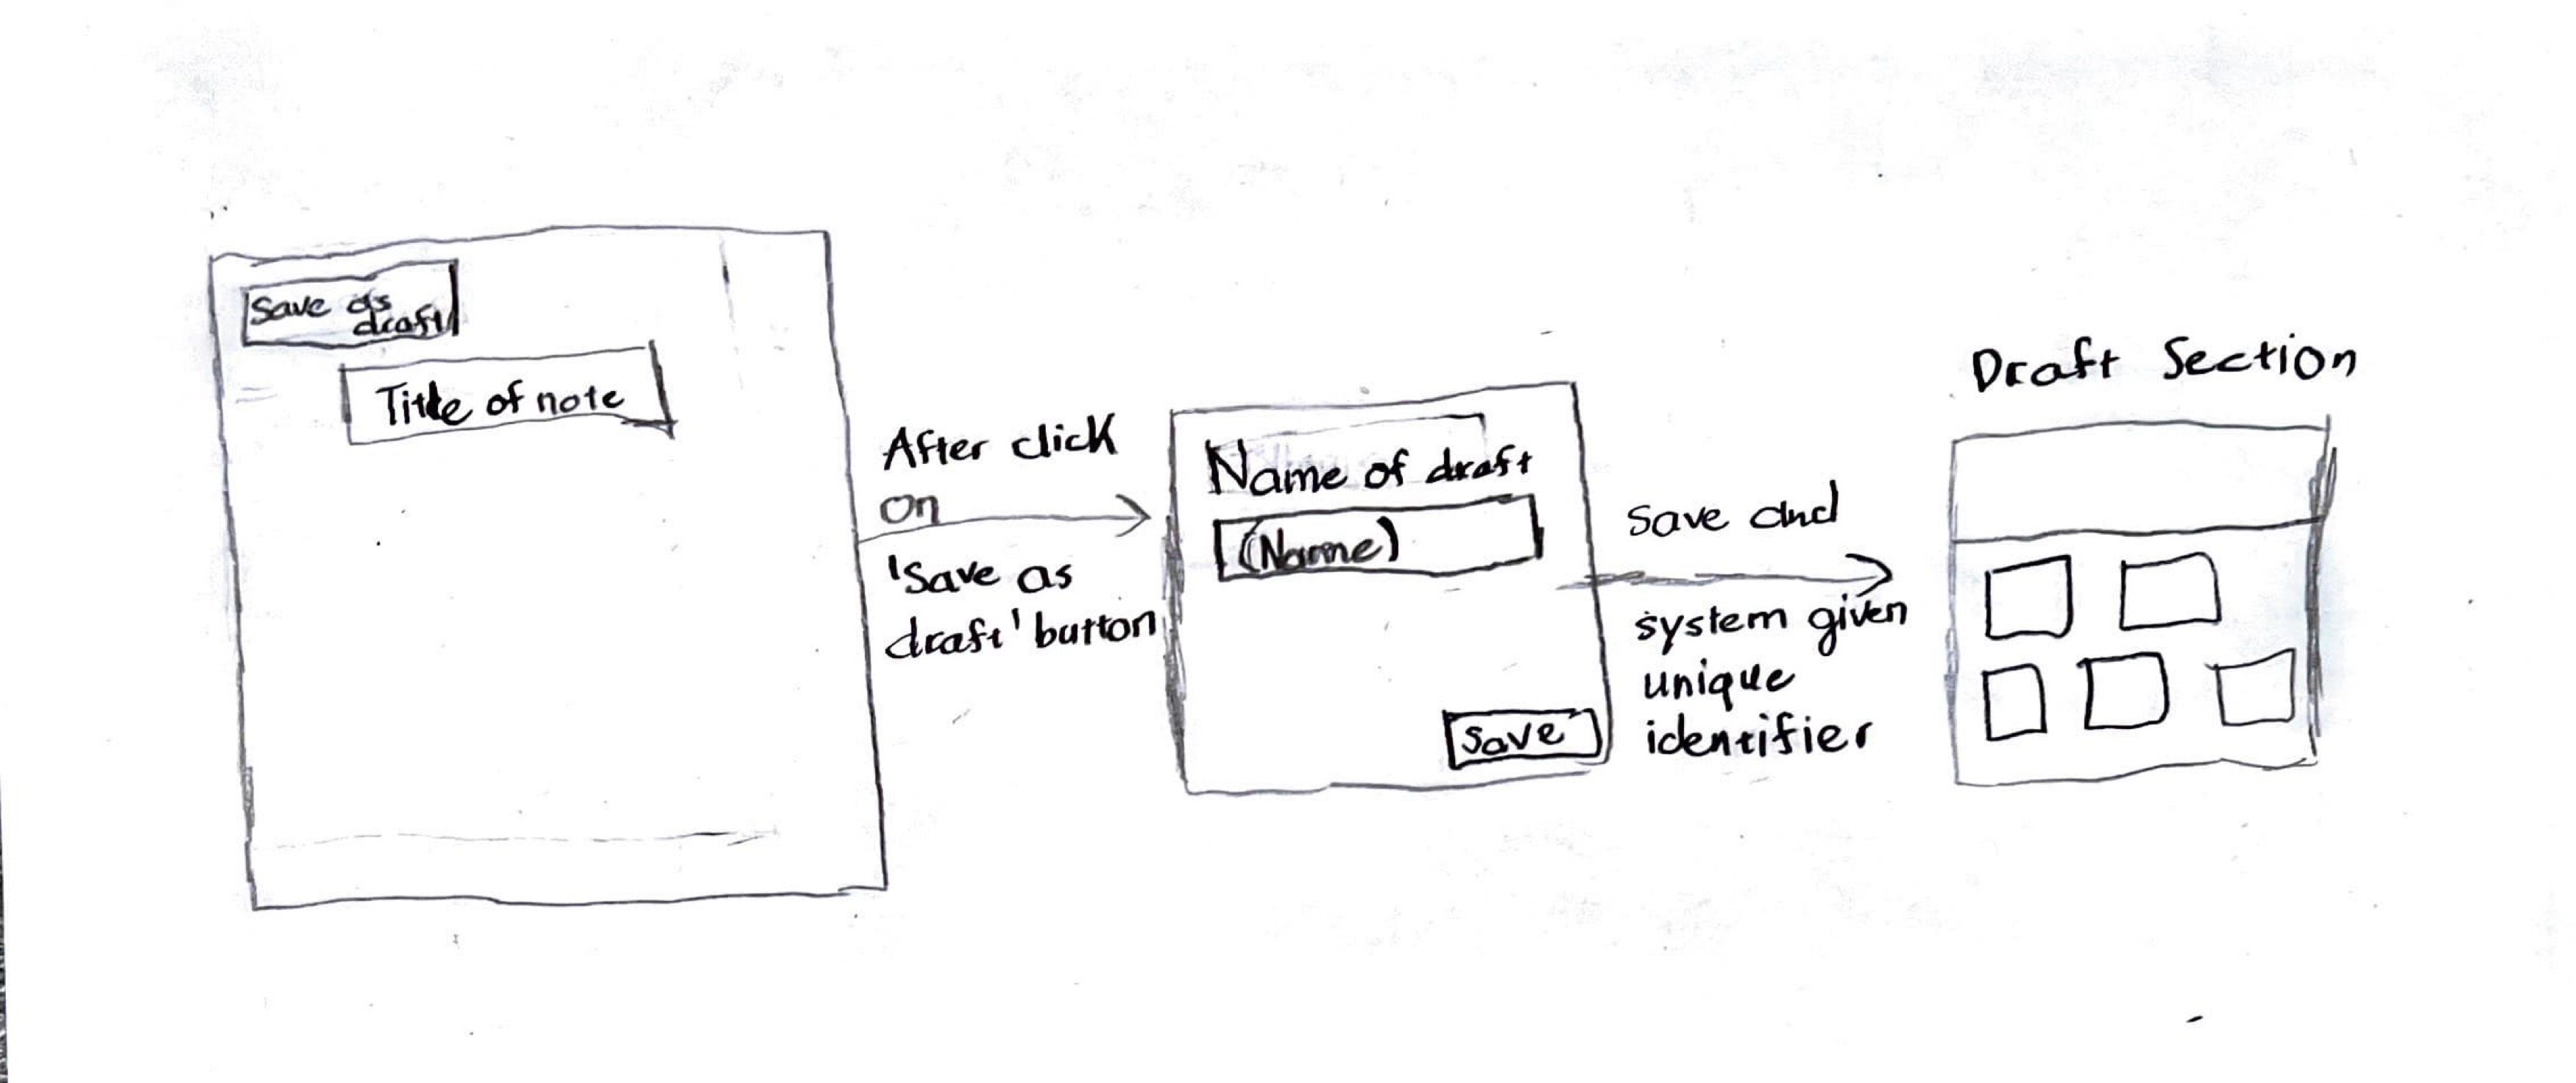 Save as
draft
Title of note
After click
on
'Save as
draft' button
Name of draft
(Name)
Save
save and
system given
unique
identifier
Draft Section